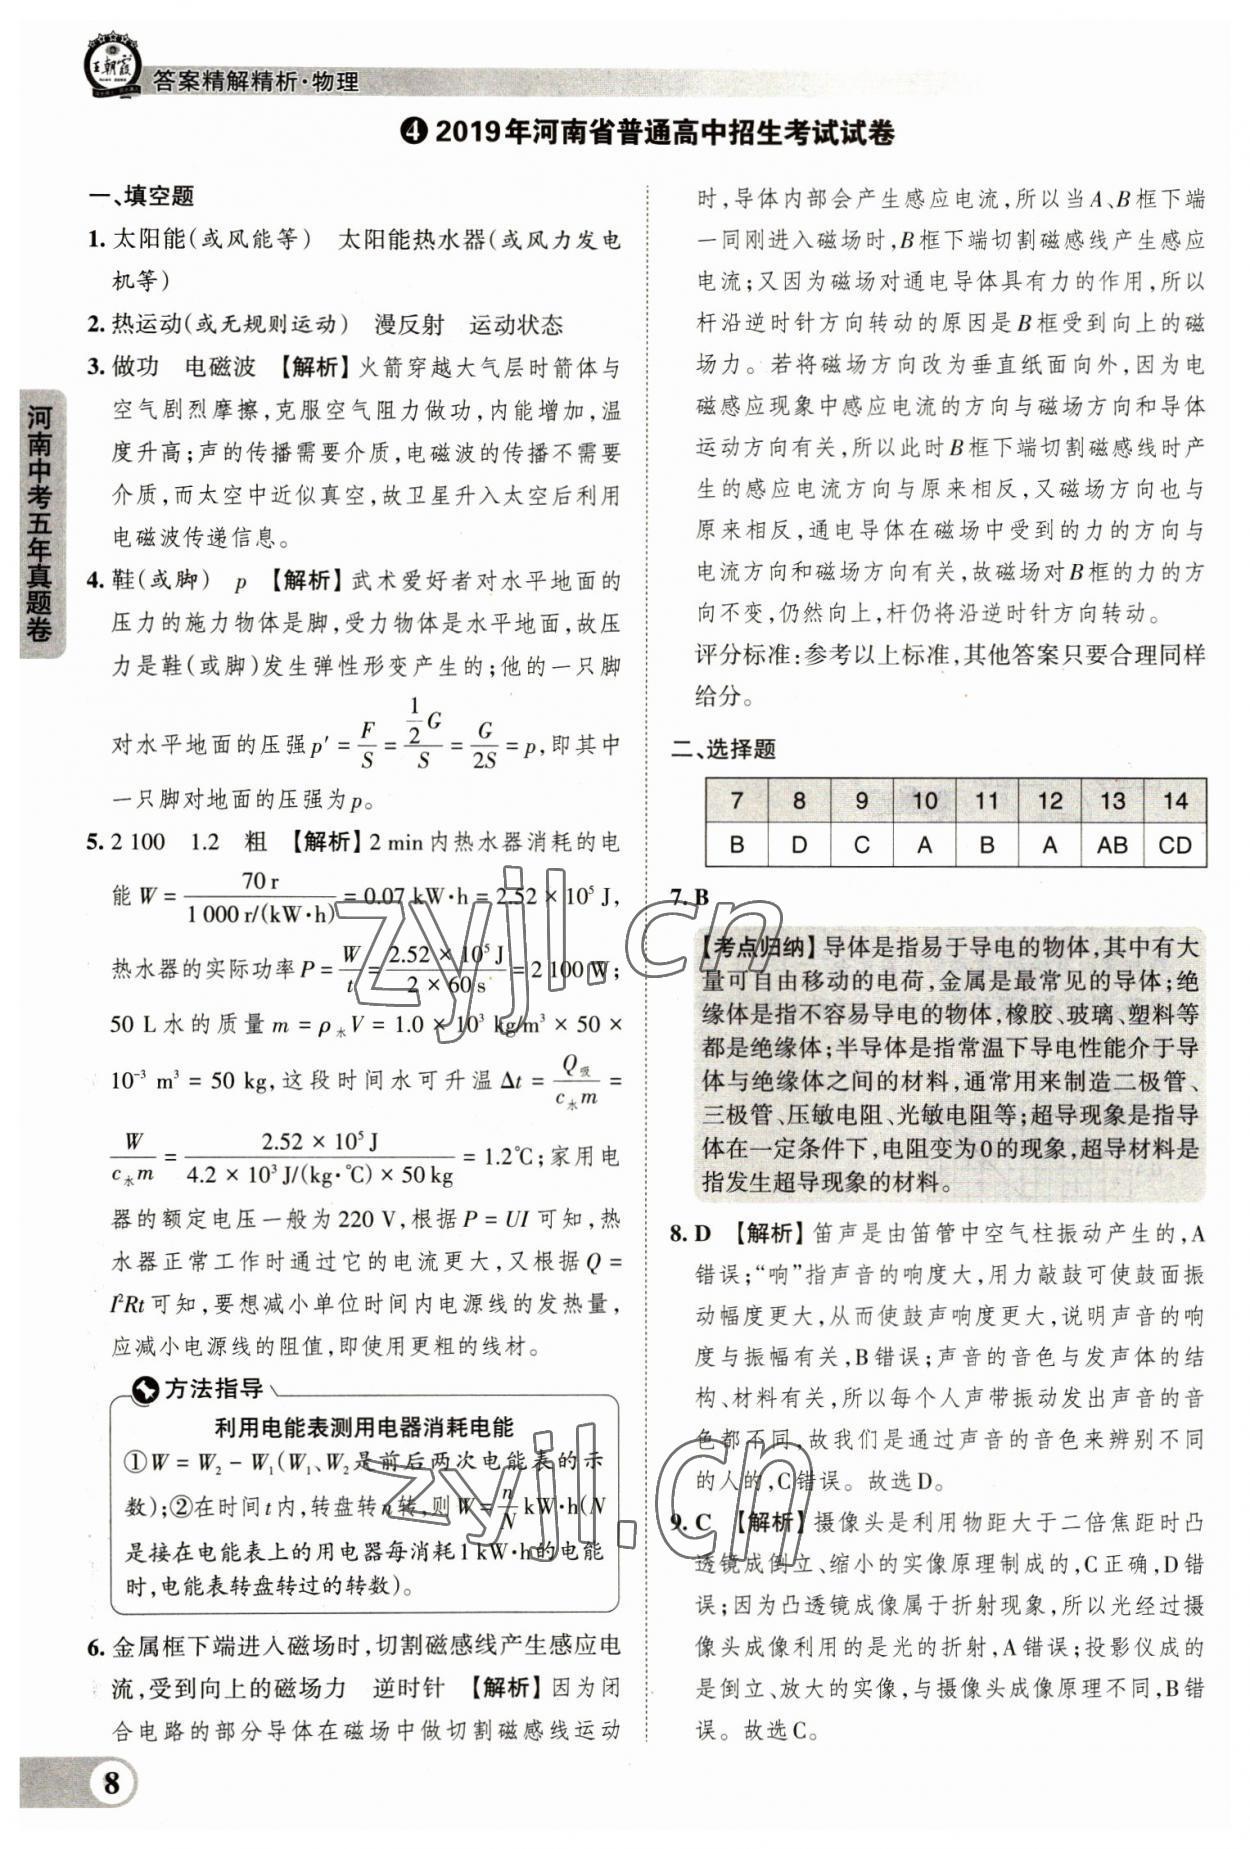 王朝霞
答案精解精析·物理
❹2019年河南省普通高中招生考试试卷
河南中考五年真题卷
一、填空题
1. 太阳能(或风能等)　太阳能热水器(或风力发电
机等)
2. 热运动(或无规则运动)　漫反射　运动状态
3. 做功　电磁波　【解析】火箭穿越大气层时箭体与
空气剧烈摩擦,克服空气阻力做功,内能增加,温
度升高;声的传播需要介质,电磁波的传播不需要
介质,而太空中近似真空,故卫星升入太空后利用
电磁波传递信息。
4. 鞋(或脚)　p　【解析】武术爱好者对水平地面的
压力的施力物体是脚,受力物体是水平地面,故压
力是鞋(或脚)发生弹性形变产生的;他的一只脚
对水平地面的压强p′=F/S=(1/2 G)/S=G/2S=p,即其中
一只脚对地面的压强为p。
5. 2 100　1.2　粗　【解析】2 min内热水器消耗的电
能W=70 r/1 000 r/(kW·h)=0.07 kW·h=2.52×10⁵ J,
热水器的实际功率P=W/t=2.52×10⁵ J/2×60 s=2 100 W;
50 L水的质量m=ρ水V=1.0×10³ kg/m³×50×
10⁻³ m³=50 kg,这段时间水可升温Δt=Q吸/c水m=
W/c水m=2.52×10⁵ J/4.2×10³ J/(kg·℃)×50 kg=1.2℃;家用电
器的额定电压一般为220 V,根据P=UI可知,热
水器正常工作时通过它的电流更大,又根据Q=
I²Rt可知,要想减小单位时间内电源线的发热量,
应减小电源线的阻值,即使用更粗的线材。
方法指导
利用电能表测用电器消耗电能
①W=W₂-W₁(W₁、W₂是前后两次电能表的示
数);②在时间t内,转盘转n转,则W=n/N kW·h(N
是接在电能表上的用电器每消耗1 kW·h的电能
时,电能表转盘转过的转数)。
6. 金属框下端进入磁场时,切割磁感线产生感应电
流,受到向上的磁场力　逆时针　【解析】因为闭
合电路的部分导体在磁场中做切割磁感线运动
8
时,导体内部会产生感应电流,所以当A、B框下端
一同刚进入磁场时,B框下端切割磁感线产生感应
电流;又因为磁场对通电导体具有力的作用,所以
杆沿逆时针方向转动的原因是B框受到向上的磁
场力。若将磁场方向改为垂直纸面向外,因为电
磁感应现象中感应电流的方向与磁场方向和导体
运动方向有关,所以此时B框下端切割磁感线时产
生的感应电流方向与原来相反,又磁场方向也与
原来相反,通电导体在磁场中受到的力的方向与
电流方向和磁场方向有关,故磁场对B框的力的方
向不变,仍然向上,杆仍将沿逆时针方向转动。
评分标准:参考以上标准,其他答案只要合理同样
给分。
二、选择题
7 8 9 10 11 12 13 14
B D C A B A AB CD
7. B
【考点归纳】导体是指易于导电的物体,其中有大
量可自由移动的电荷,金属是最常见的导体;绝
缘体是指不容易导电的物体,橡胶、玻璃、塑料等
都是绝缘体;半导体是指常温下导电性能介于导
体与绝缘体之间的材料,通常用来制造二极管、
三极管、压敏电阻、光敏电阻等;超导现象是指导
体在一定条件下,电阻变为0的现象,超导材料是
指发生超导现象的材料。
8. D　【解析】笛声是由笛管中空气柱振动产生的,A
错误;“响”指声音的响度大,用力敲鼓可使鼓面振
动幅度更大,从而使鼓声响度更大,说明声音的响
度与振幅有关,B错误;声音的音色与发声体的结
构、材料有关,所以每个人声带振动发出声音的音
色都不同,故我们是通过声音的音色来辨别不同
的人的,C错误。故选D。
9. C　【解析】摄像头是利用物距大于二倍焦距时凸
透镜成倒立、缩小的实像原理制成的,C正确,D错
误;因为凸透镜成像属于折射现象,所以光经过摄
像头成像利用的是光的折射,A错误;投影仪成的
是倒立、放大的实像,与摄像头成像原理不同,B错
误。故选C。
zyjl.cn
zyjl.cn